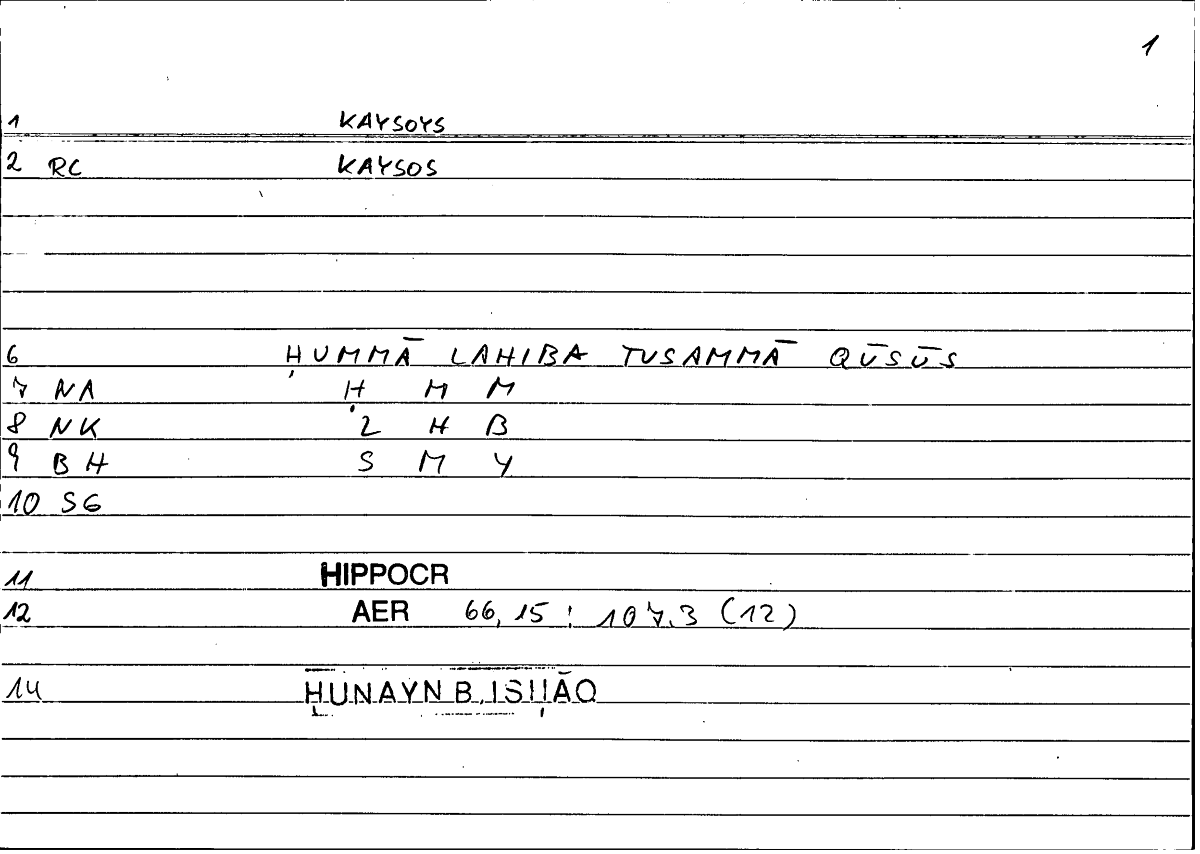 1
1 KAYSOYS
2 RC KAYSOS
6 ḤUMMĀ LAHIBA TUSAMMĀ QŪSŪS
7 NA Ḥ M M
8 NK L H B
9 BH S M Y
10 SG
11 HIPPOCR
12 AER 66,15 : 107.3 (12)
14 ḤUNAYN B. ISḤĀQ